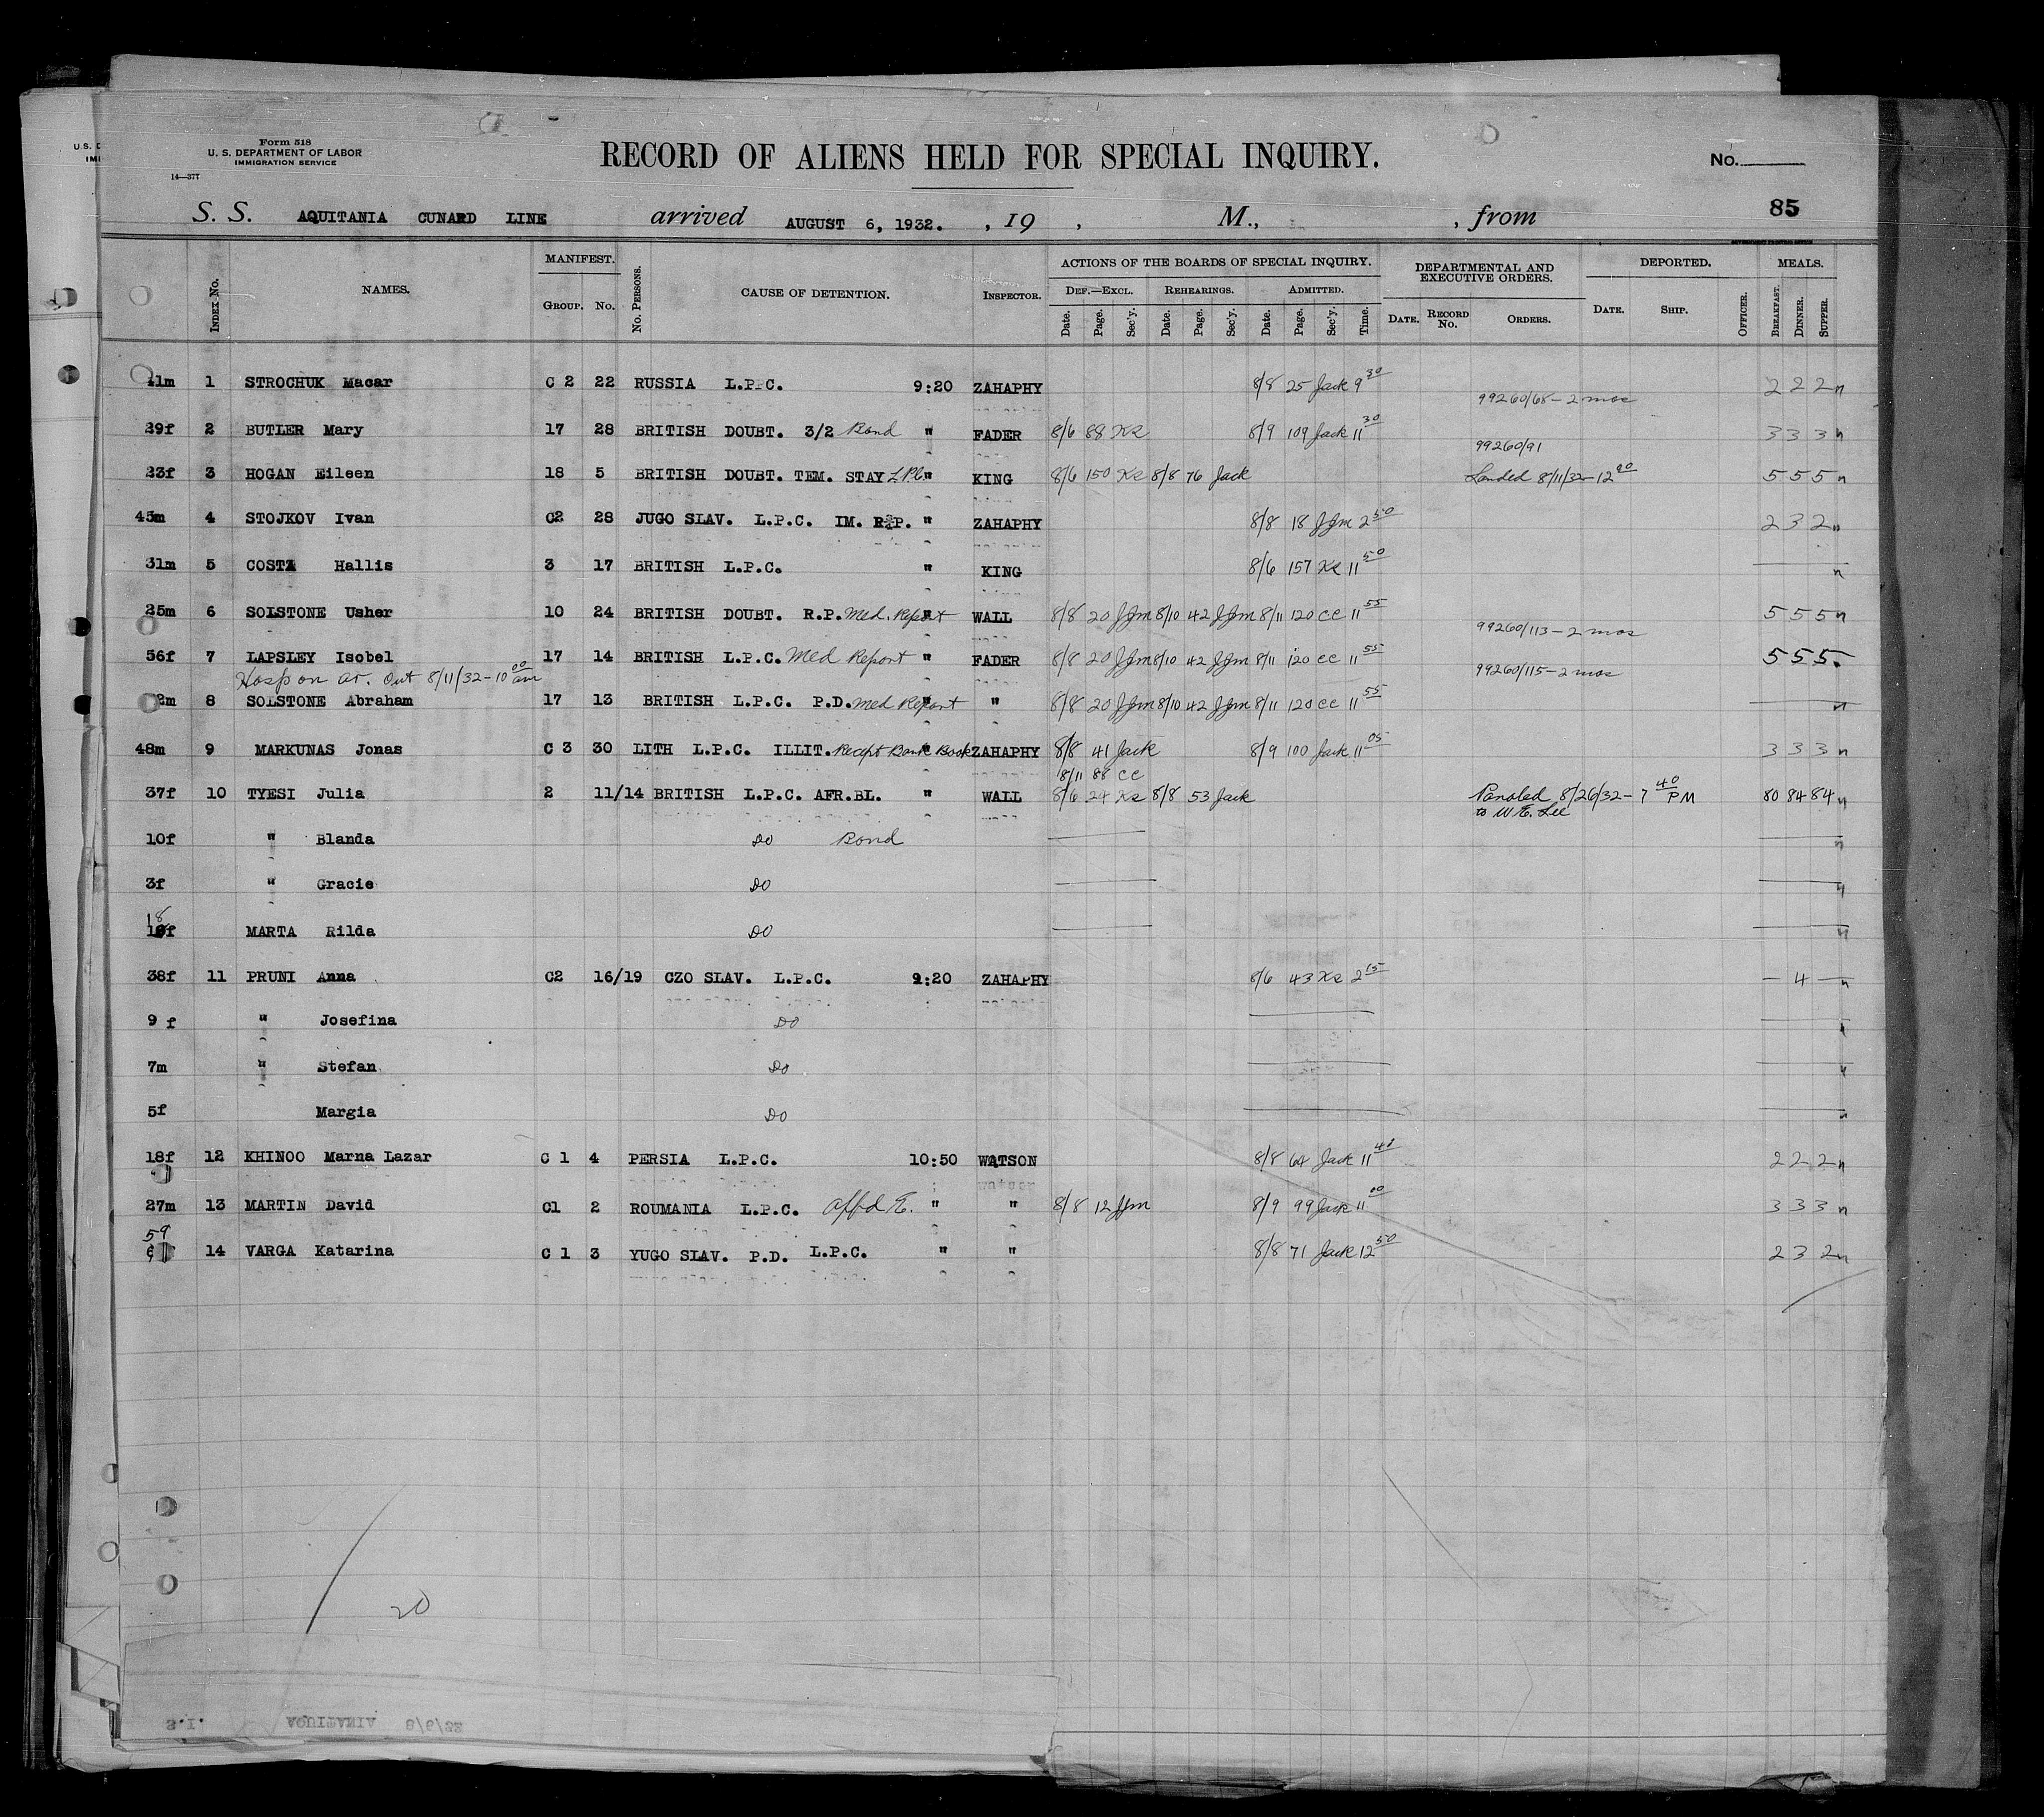 Form 518
U. S. DEPARTMENT OF LABOR
IMMIGRATION SERVICE
14—377
RECORD OF ALIENS HELD FOR SPECIAL INQUIRY.
No.
85
S. S. AQUITANIA CUNARD LINE arrived AUGUST 6, 1932. , 19 , M., , from
INDEX No. NAMES. MANIFEST. GROUP. No. No. PERSONS. CAUSE OF DETENTION. INSPECTOR. ACTIONS OF THE BOARDS OF SPECIAL INQUIRY. DEPARTMENTAL AND EXECUTIVE ORDERS. DEPORTED. MEALS.
DEF.—EXCL. REHEARINGS. ADMITTED.
Date. Page. Sec'y. Date. Page. Sec'y. Date. Page. Sec'y. Time. DATE. RECORD No. ORDERS. DATE. SHIP. OFFICER. BREAKFAST. DINNER. SUPPER.
41m 1 STROCHUK Macar C 2 22 RUSSIA L.P.C. 9:20 ZAHAPHY 8/8 25 Jack 9 30 99260/68 - 2 mos 2 2 2 n
29f 2 BUTLER Mary 17 28 BRITISH DOUBT. 3/2 Bond " FADER 8/6 88 Ks 8/9 109 Jack 11 30 99260/91 3 3 3 n
23f 3 HOGAN Eileen 18 5 BRITISH DOUBT. TEM. STAY LPC " KING 8/6 150 Ks 8/8 76 Jack Landed 8/11/32 - 12 00 5 5 5 n
45m 4 STOJKOV Ivan C2 28 JUGO SLAV. L.P.C. IM. R.P. " ZAHAPHY 8/8 18 JJm 2 50 2 3 2 n
31m 5 COSTA Hallis 3 17 BRITISH L.P.C. " KING 8/6 157 Ks 11 50 n
25m 6 SOLSTONE Usher 10 24 BRITISH DOUBT. R.P. Med. Report " WALL 8/8 20 JJm 8/10 42 JJm 8/11 120 CC 11 55 99260/113 - 2 mos 5 5 5 n
56f 7 LAPSLEY Isobel 17 14 BRITISH L.P.C. Med Report " FADER 8/8 20 JJm 8/10 42 JJm 8/11 120 CC 11 55 99260/115 - 2 mos 5 5 5.
Hosp on ar. Out 8/11/32 - 10 00 am
2m 8 SOLSTONE Abraham 17 13 BRITISH L.P.C. P.D. Med Report " " 8/8 20 JJm 8/10 42 JJm 8/11 120 CC 11 55 n
48m 9 MARKUNAS Jonas C 3 30 LITH L.P.C. ILLIT. Recpt Bank Book " ZAHAPHY 8/8 41 Jack 8/9 100 Jack 11 05 3 3 3 n
8/11 88 CC
37f 10 TYESI Julia 2 11/14 BRITISH L.P.C. AFR.BL. " WALL 8/6 24 Ks 8/8 53 Jack Paroled 8/26/32 - 7 40 PM 80 84 84 n
to W E. Lee
10f " Blanda DO Bond n
3f " Gracie DO n
18
f MARTA Rilda DO n
38f 11 PRUNI Anna C2 16/19 CZO SLAV. L.P.C. 9:20 ZAHAPHY 8/6 43 Ks 2 15 — 4 — n
9 f " Josefina DO
7m " Stefan DO
5f Margia DO
18f 12 KHINOO Marna Lazar C 1 4 PERSIA L.P.C. 10:50 WATSON 8/8 64 Jack 11 40 2 2 2 n
27m 13 MARTIN David C1 2 ROUMANIA L.P.C. Affd E. " " 8/8 12 JJm 8/9 99 Jack 11 00 3 3 3 n
59
14 VARGA Katarina C 1 3 YUGO SLAV. P.D. L.P.C. " " 8/8 71 Jack 12 50 2 3 2 n
20
S.I. AQUITANIA 8/6/32